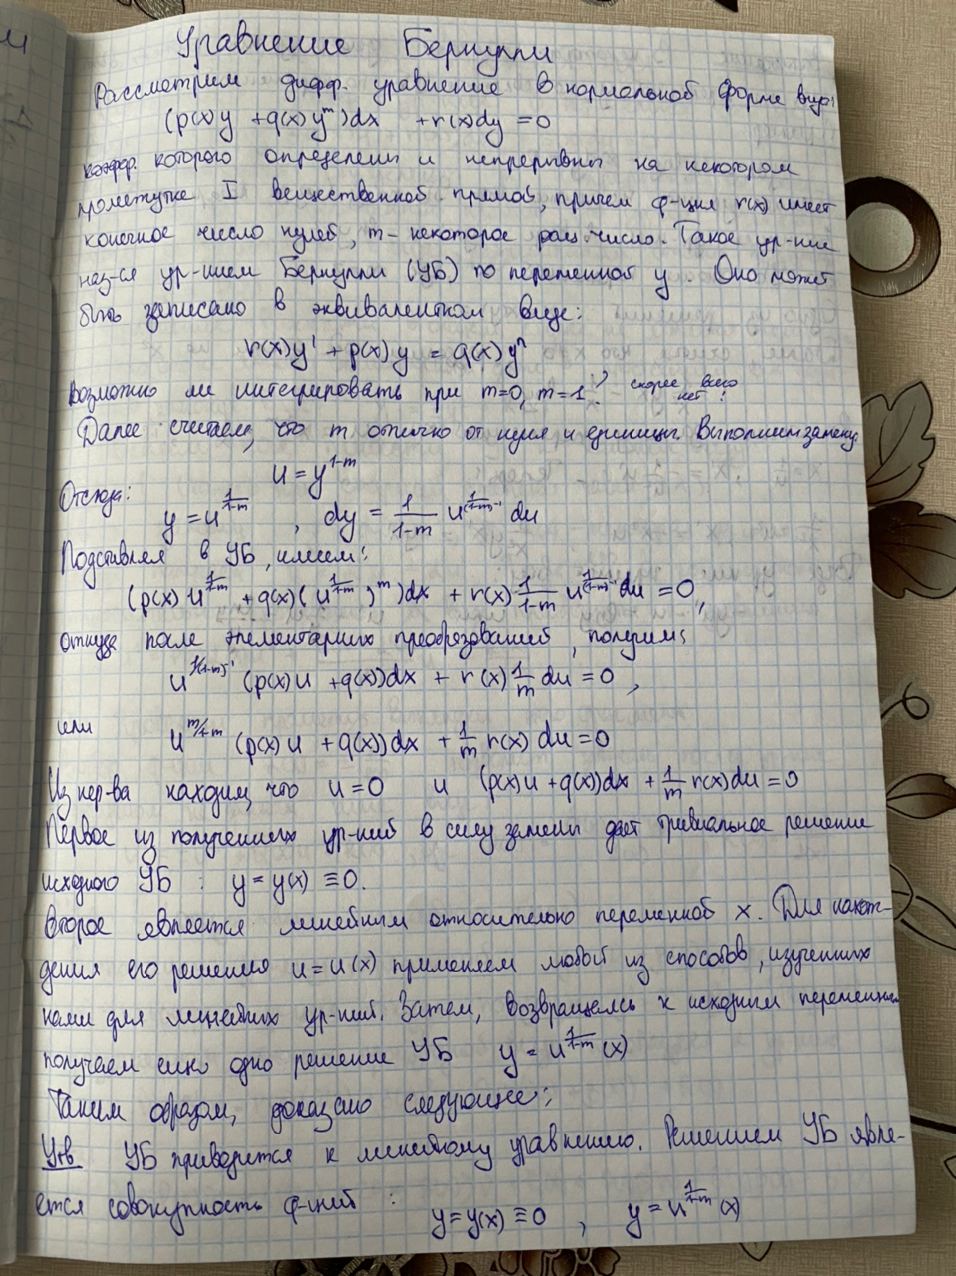 Уравнение Бернулли
Рассмотрим дифф. уравнение в нормальной форме вида
(p(x)y + q(x)y^m)dx + r(x)dy = 0
коэфф. которого определены и непрерывны на некотором
промежутке I вещественной прямой, причем ф-ция r(x) имеет
конечное число нулей, m - некоторое рац. число. Такое ур-ние
наз-ся ур-нием Бернулли (УБ) по переменной y. Оно может
быть записано в эквивалентном виде:
r(x)y' + p(x)y = q(x)y^n
Возможно ли интегрировать при m=0, m=1? скорее всего
нет!
Далее считаем, что m отлично от нуля и единицы. Выполним замену
u = y^{1-m}
Отсюда:
y = u^{\frac{1}{1-m}}, dy = \frac{1}{1-m} u^{(\frac{1}{1-m})-1} du
Подставляя в УБ, имеем:
(p(x) u^{\frac{1}{1-m}} + q(x)(u^{\frac{1}{1-m}})^m)dx + r(x) \frac{1}{1-m} u^{(\frac{1}{1-m})-1} du = 0,
откуда после элементарных преобразований, получим:
u^{1/(1-m)-1} (p(x)u + q(x))dx + r(x) \frac{1}{m} du = 0,
или
u^{m/1-m} (p(x)u + q(x))dx + \frac{1}{m} r(x) du = 0
Из нер-ва находим, что u = 0 и (p(x)u + q(x))dx + \frac{1}{m} r(x)du = 0
Первое из полученных ур-ний в силу замены дает тривиальное решение
исходного УБ : y = y(x) ≡ 0.
Второе является линейным относительно переменной x. Для нахож-
дения его решения u = u(x) применяем любой из способов, изученных
нами для линейных ур-ний. Затем, возвращаясь к исходным переменным
получаем еще одно решение УБ y = u^{\frac{1}{1-m}}(x)
Таким образом, доказано следующее:
Утв УБ приводится к линейному уравнению. Решением УБ явля-
ется совокупность ф-ций :
y = y(x) ≡ 0 , y = u^{\frac{1}{1-m}}(x)